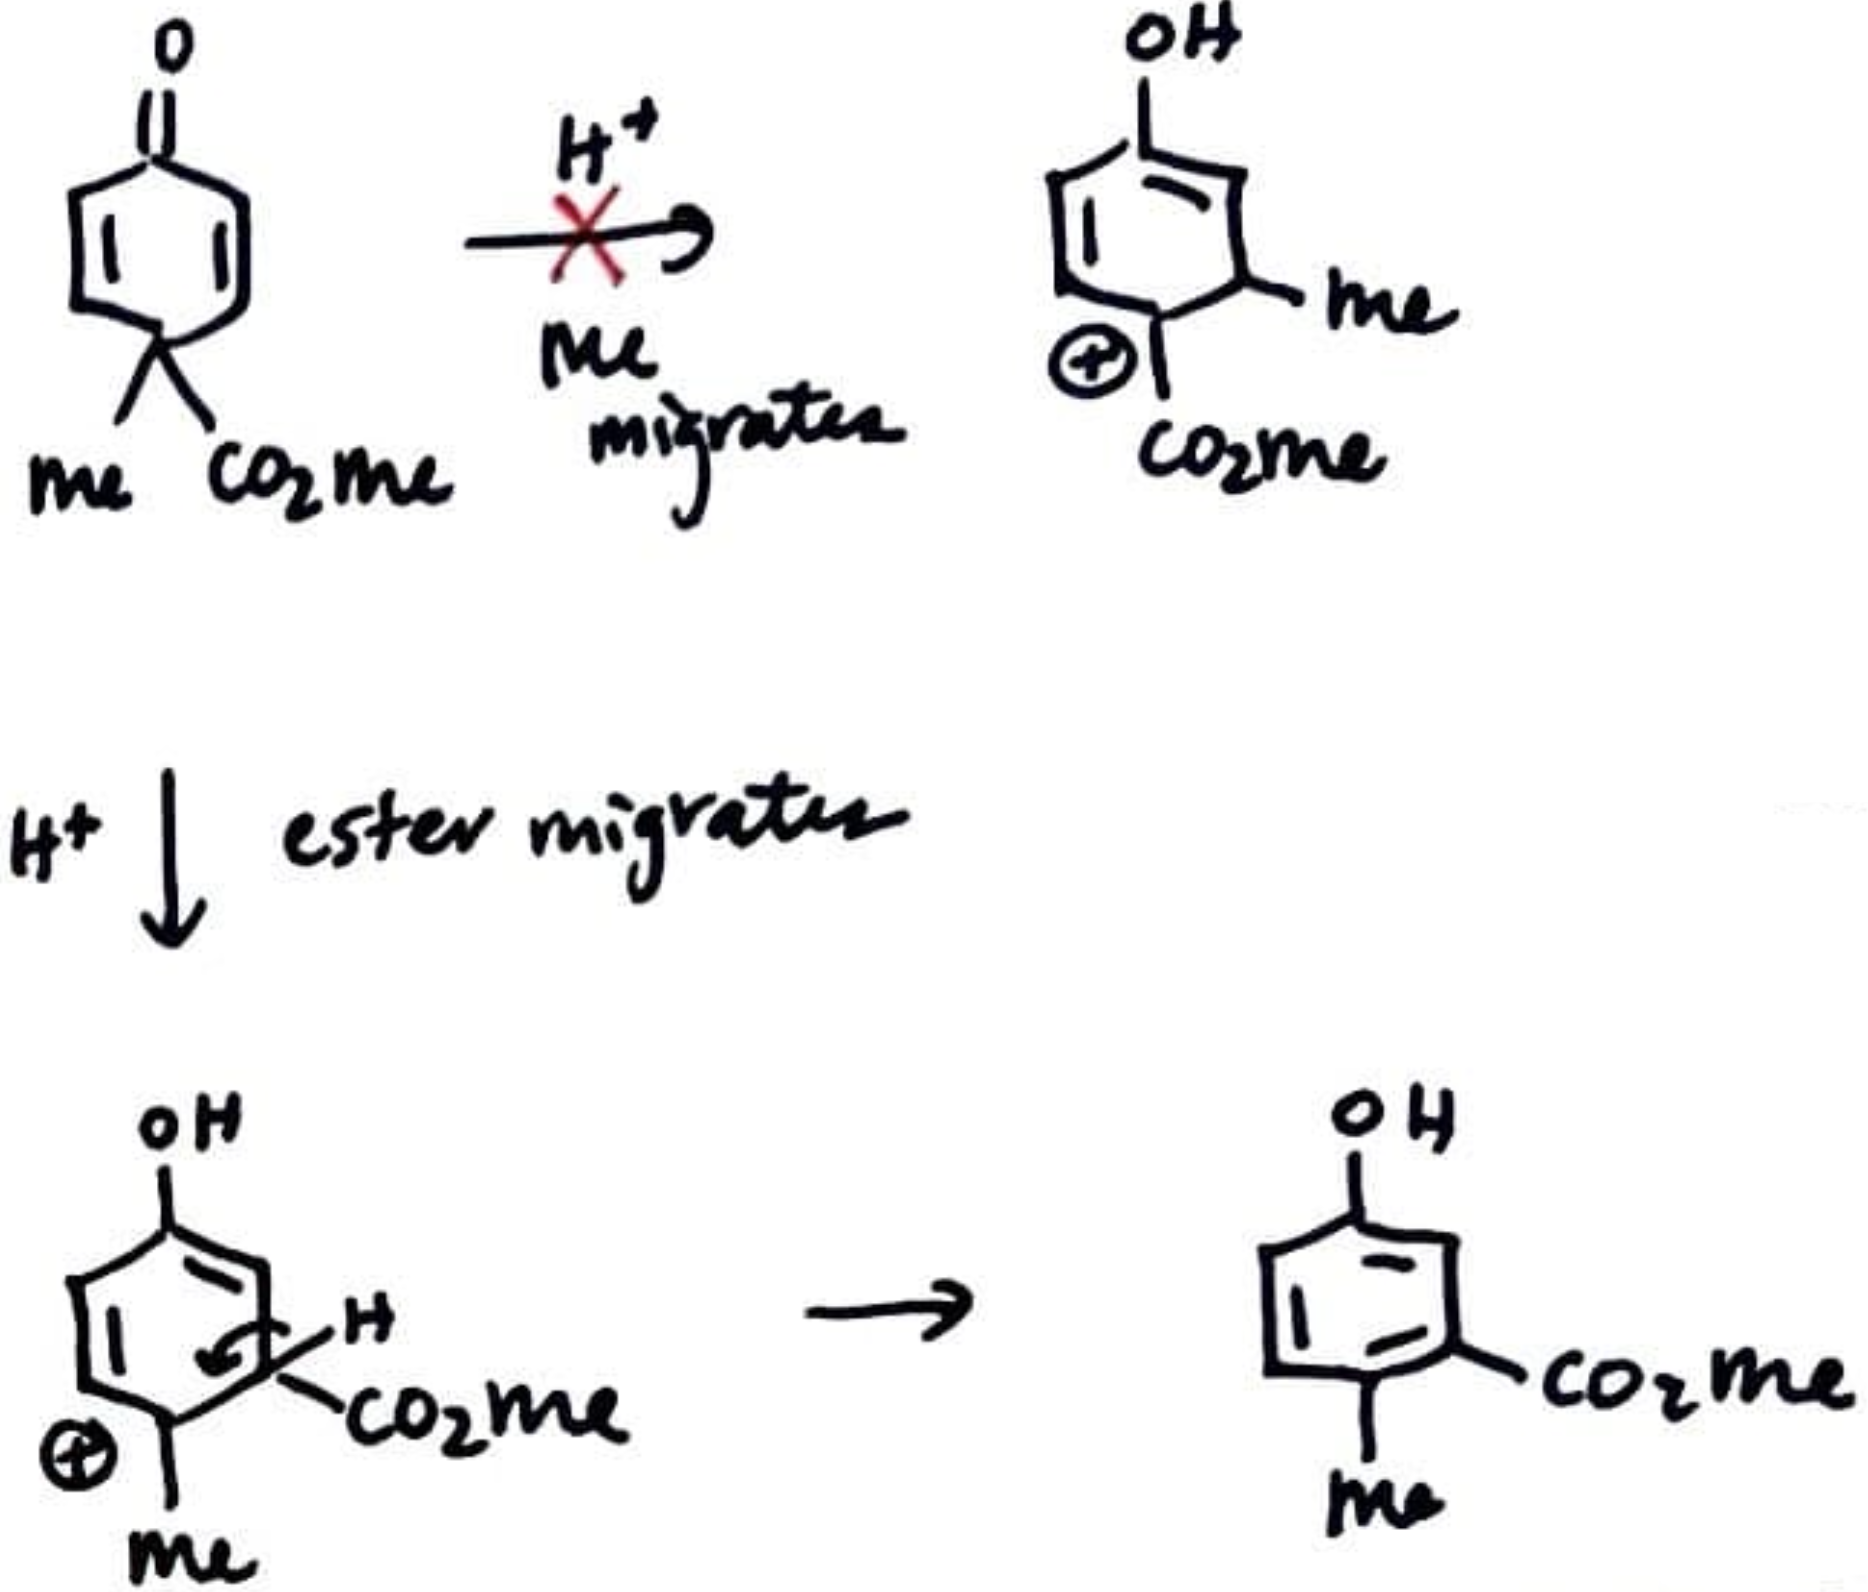 O
OH
H+
me
me
migrates
me
CO2me
⊕
CO2me
H+
ester migrates
OH
H
CO2me
⊕
me
OH
CO2me
me